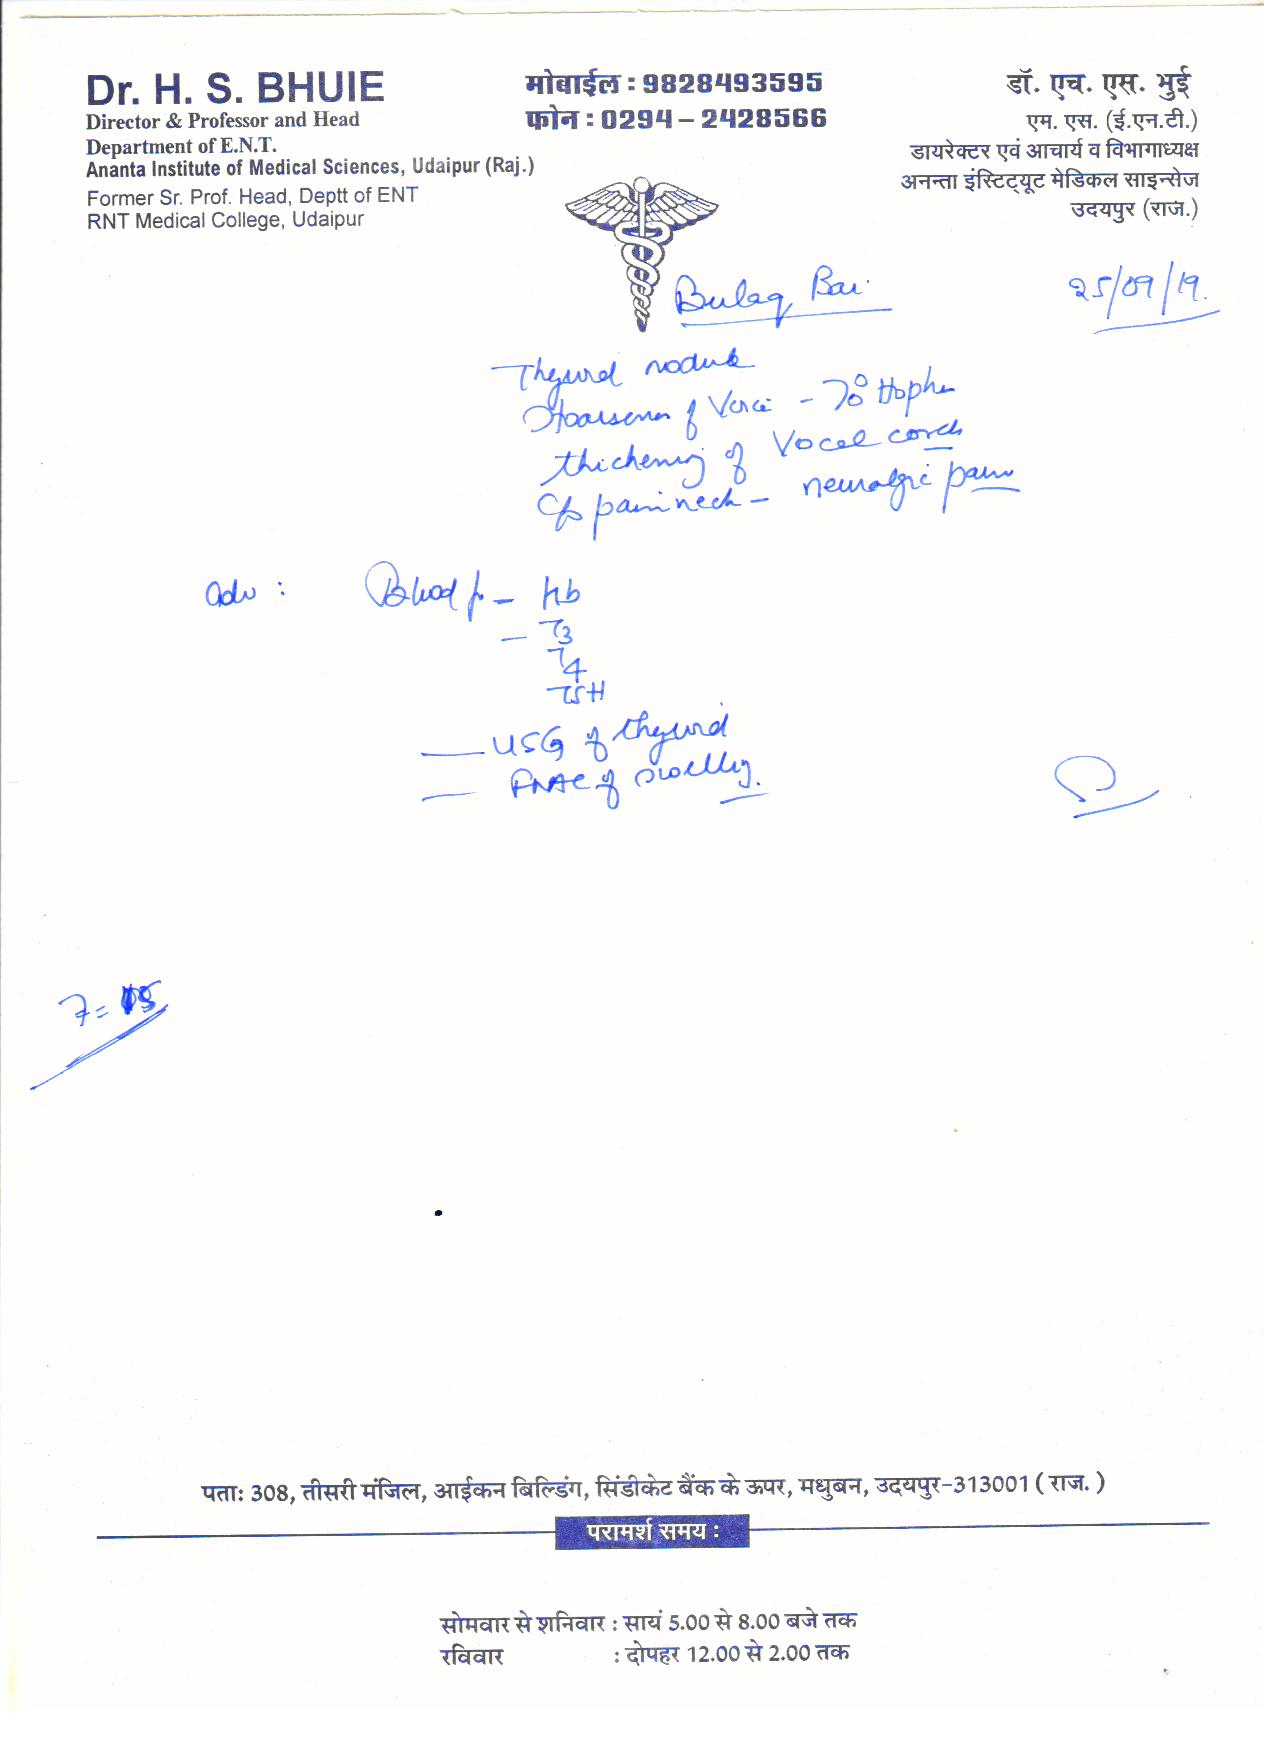 Dr. H. S. BHUIE
Director & Professor and Head
Department of E.N.T.
Ananta Institute of Medical Sciences, Udaipur (Raj.)
Former Sr. Prof. Head, Deptt of ENT
RNT Medical College, Udaipur
मोबाईल : 9828493595
फोन : 0294 – 2428566
डॉ. एच. एस. भुई
एम. एस. (ई.एन.टी.)
डायरेक्टर एवं आचार्य व विभागाध्यक्ष
अनन्ता इंस्टिट्यूट मेडिकल साइन्सेज
उदयपुर (राज.)
Bulaq Bai
25/09/19.
Thyroid nodule
Hoarseness of Voice - 70°
thickening of Vocal cords
C/o pain neck - neuralgic pain
adv : Blood for - Hb
- T3
T4
TSH
- USG of thyroid
- FNAC of swelling.
पताः 308, तीसरी मंजिल, आईकन बिल्डिंग, सिंडीकेट बैंक के ऊपर, मधुबन, उदयपुर-313001 ( राज. )
परामर्श समय :
सोमवार से शनिवार : सायं 5.00 से 8.00 बजे तक
रविवार : दोपहर 12.00 से 2.00 तक